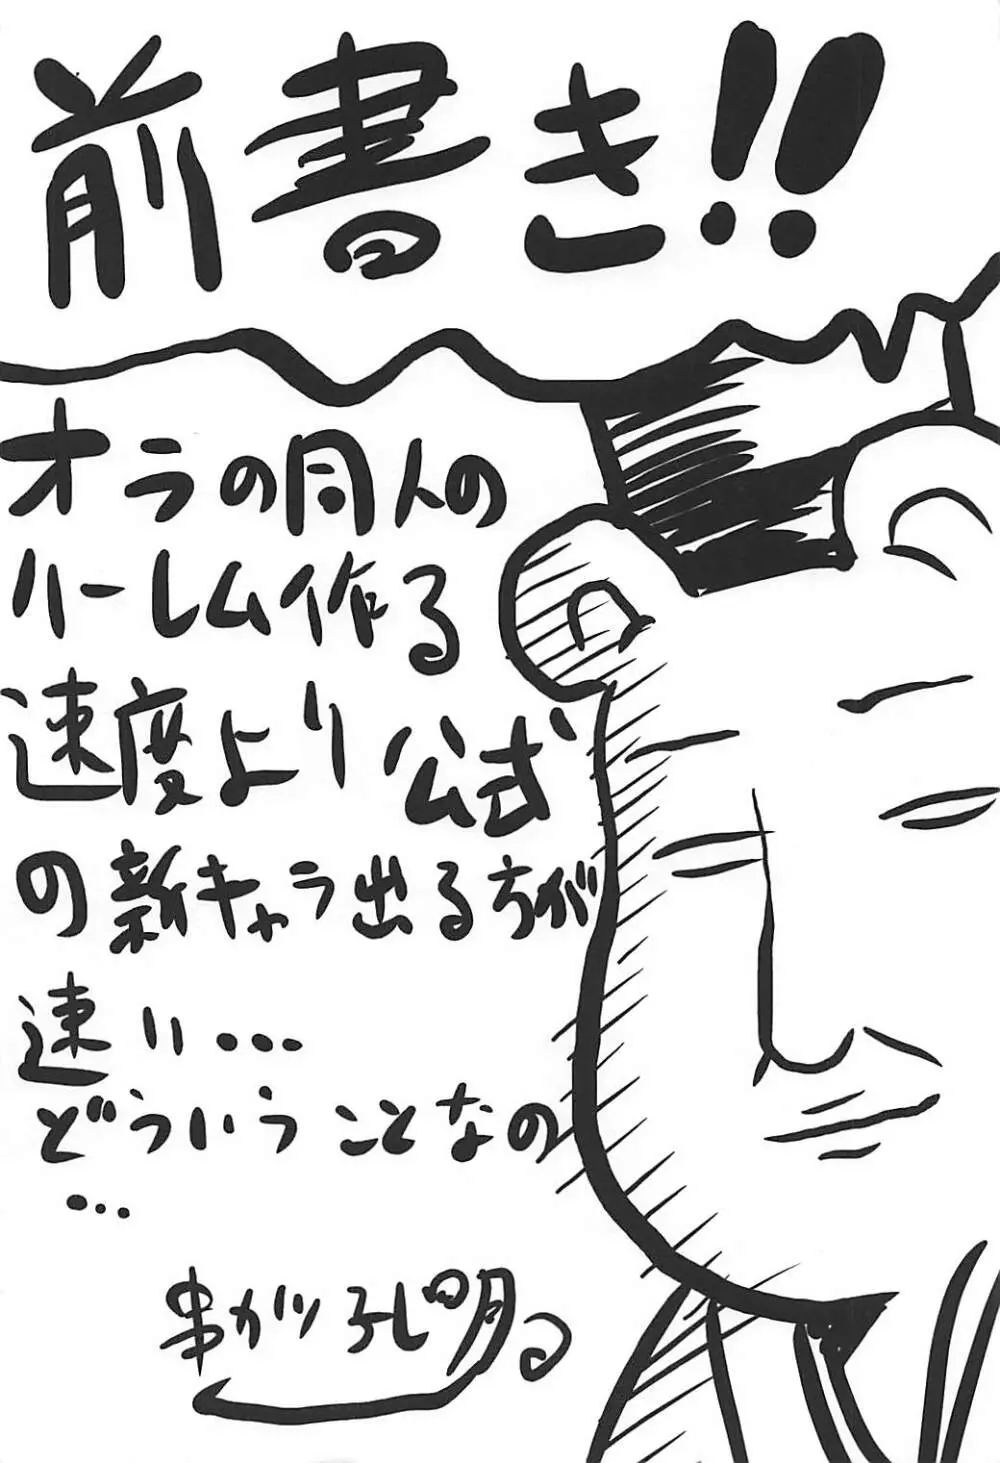 前書き!!
オラの同人の
ハーレム作る
速度より公式
の新キャラ出る方が
速い…
どういうことなの
…
串カツ孔明